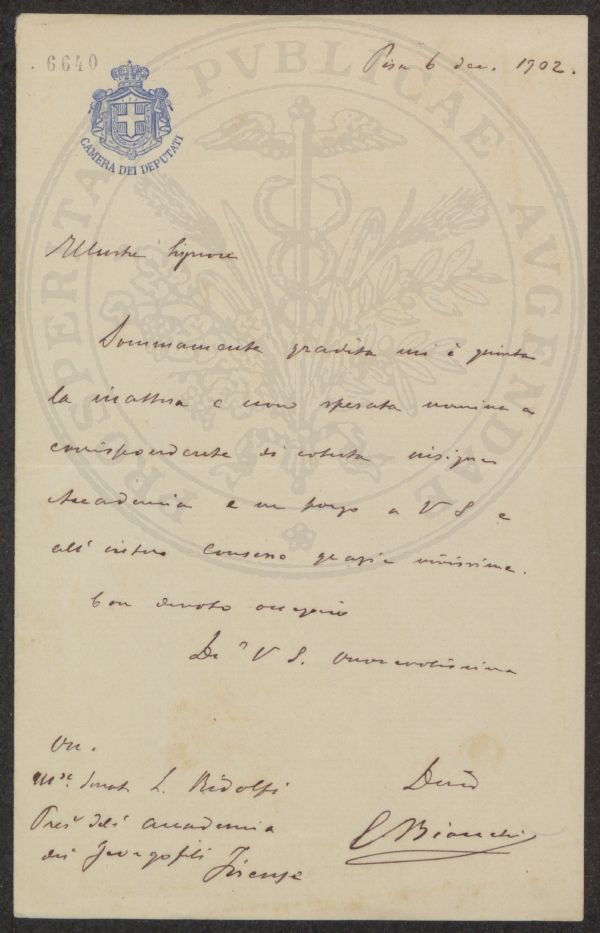 6640
CAMERA DEI DEPUTATI
PROSPERITATI PVBLICAE AVGENDAE
Pisa 6 dec. 1902.
Illustre Signore
Sommamente gradita mi è giunta
la inattesa e non sperata nomina a
corrispondente di cotesta insigne
Accademia e ne porgo a V S e
all' intero Consesso grazie vivissime.
Con devoto ossequio
Di V S. onorevolissima
On.
M.se Senat. L. Ridolfi
Pres. dell' Accademia
dei Georgofili Firenze
E Bianchi